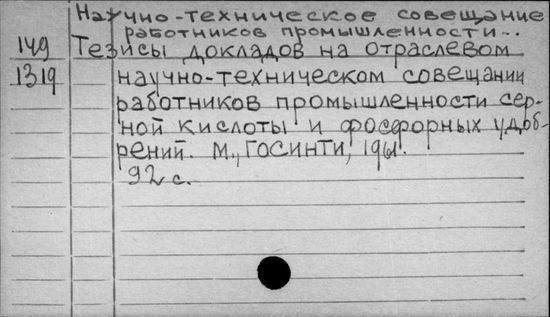 Научно-техническое совещание
работников промышленности...
149 Тезисы докладов на отраслевом
1319 научно-техническом совещании
работников промышленности сер-
ной кислоты и фосфорных удоб-
рений. М., ГОСИНТИ, 1961.
92 с.